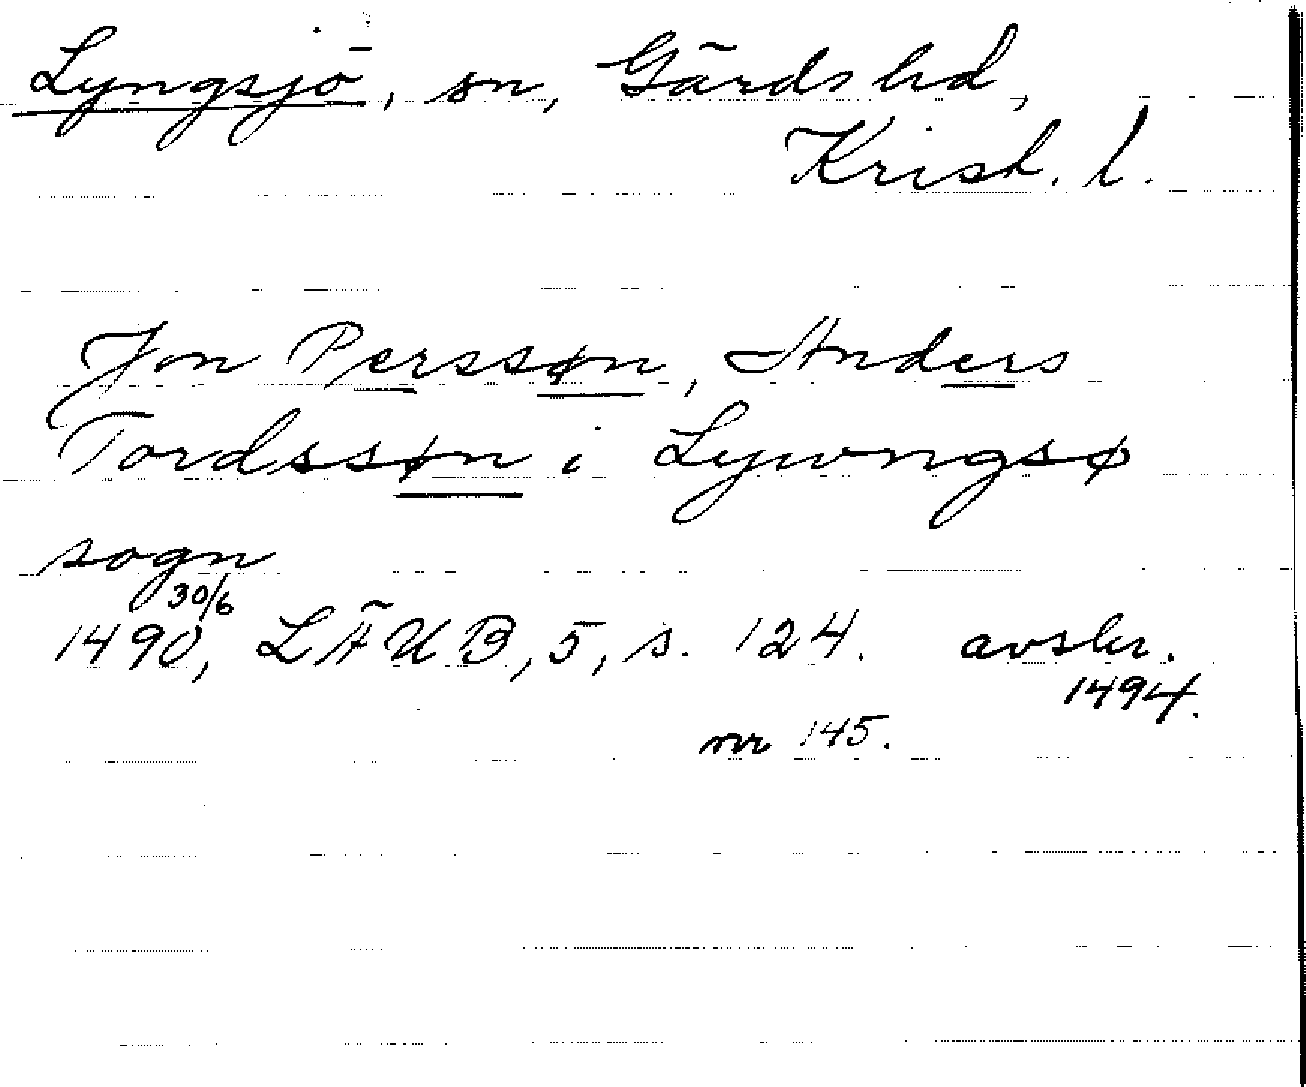 Lyngsjö, sn, Gärds hd,
Krist. l.
Jon Perssøn, Anders
Tordssøn i Lywngsø
sogn
30/6
1490, LÄUB, 5, s. 124. avskr.
1494.
nr 145.